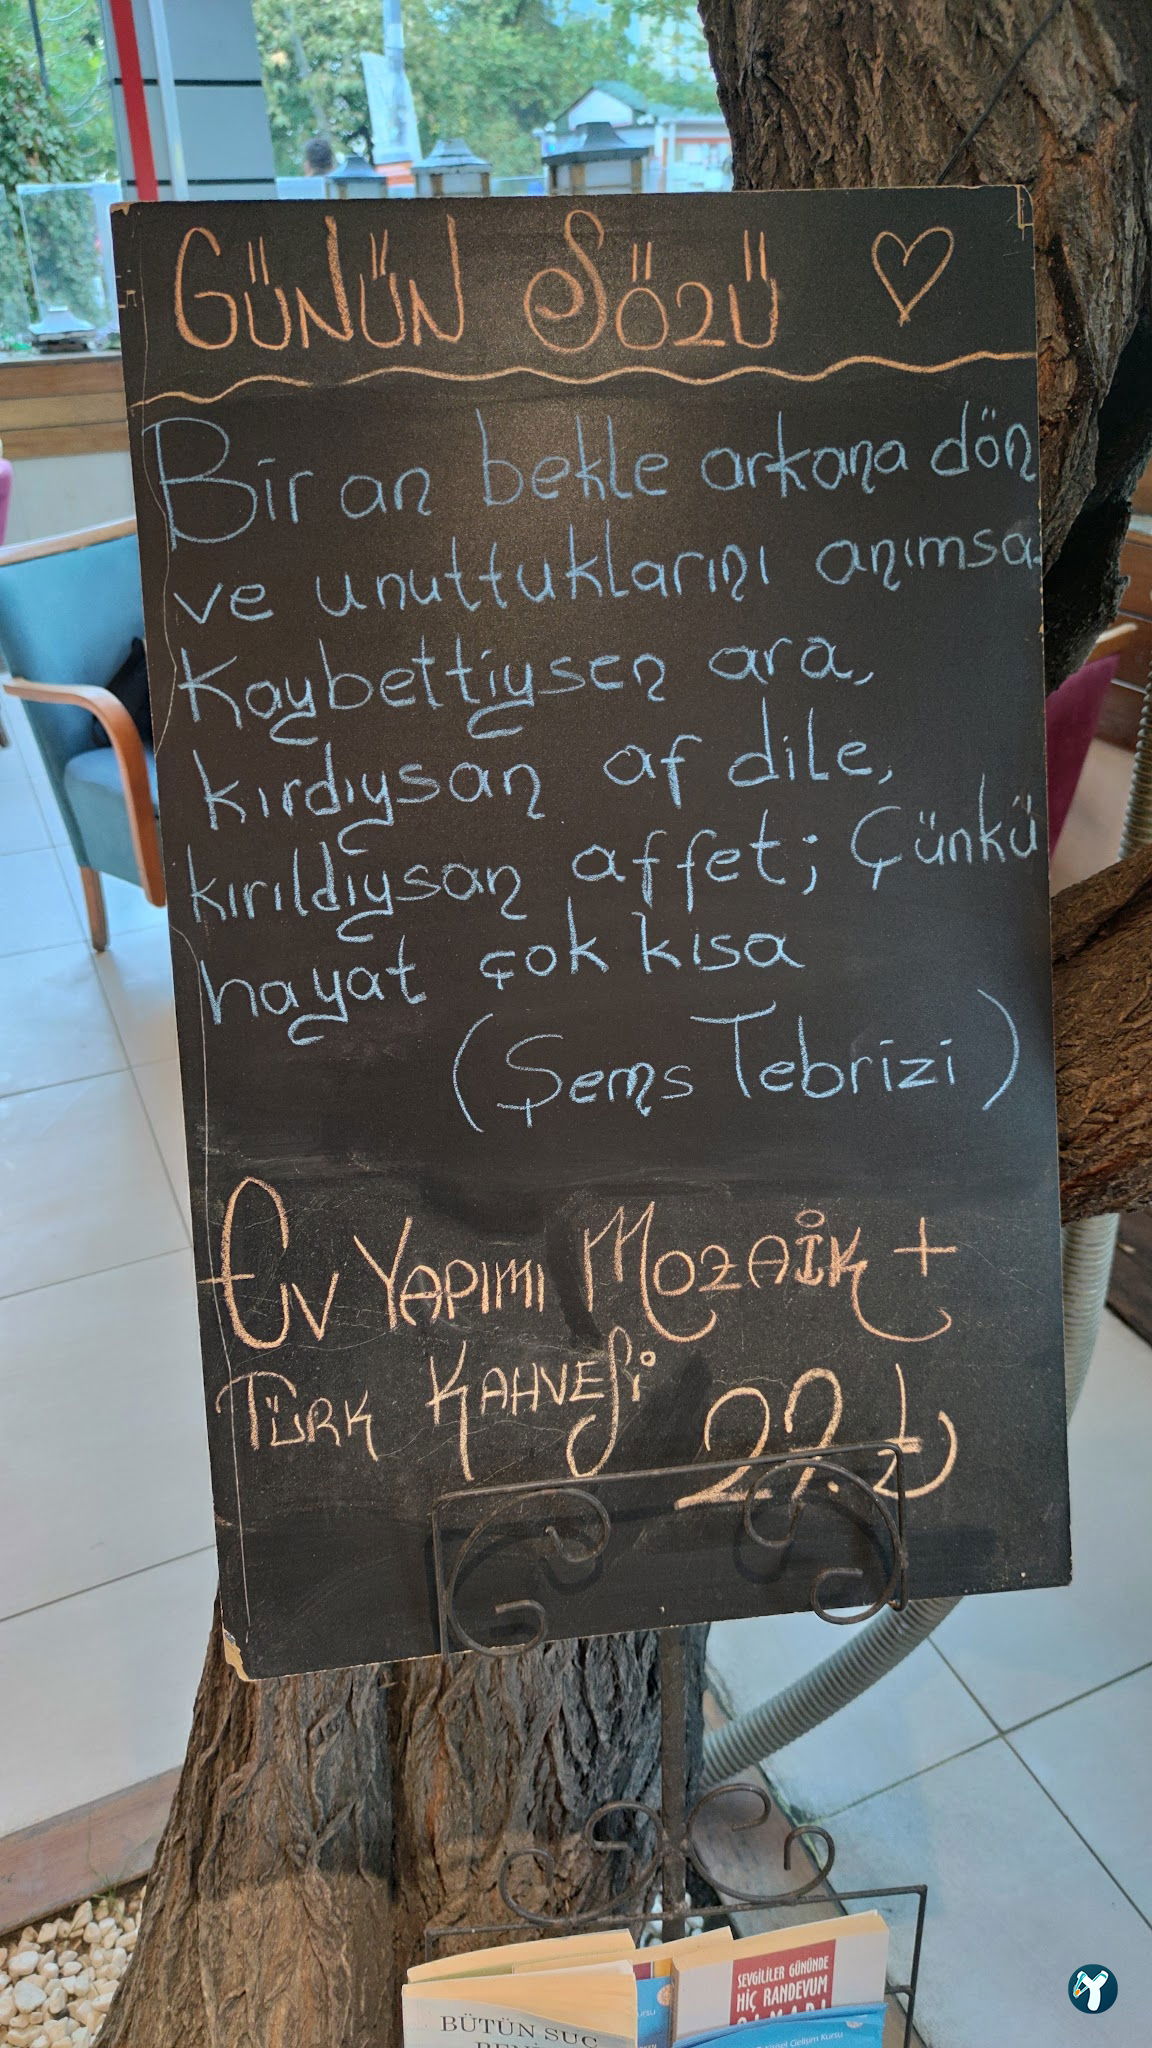 GÜNÜN SÖZÜ
Bir an bekle arkana dön
ve unuttuklarını anımsa.
Kaybettiysen ara,
kırdıysan af dile,
kırıldıysan affet; Çünkü
hayat çok kısa
(Şems Tebrizi)
EV YAPIMI MOZAİK +
TÜRK KAHVESİ
27.₺
SEVGİLİLER GÜNÜNDE
HİÇ RANDEVUM
BÜTÜN SUÇ
Gelişim Kursu